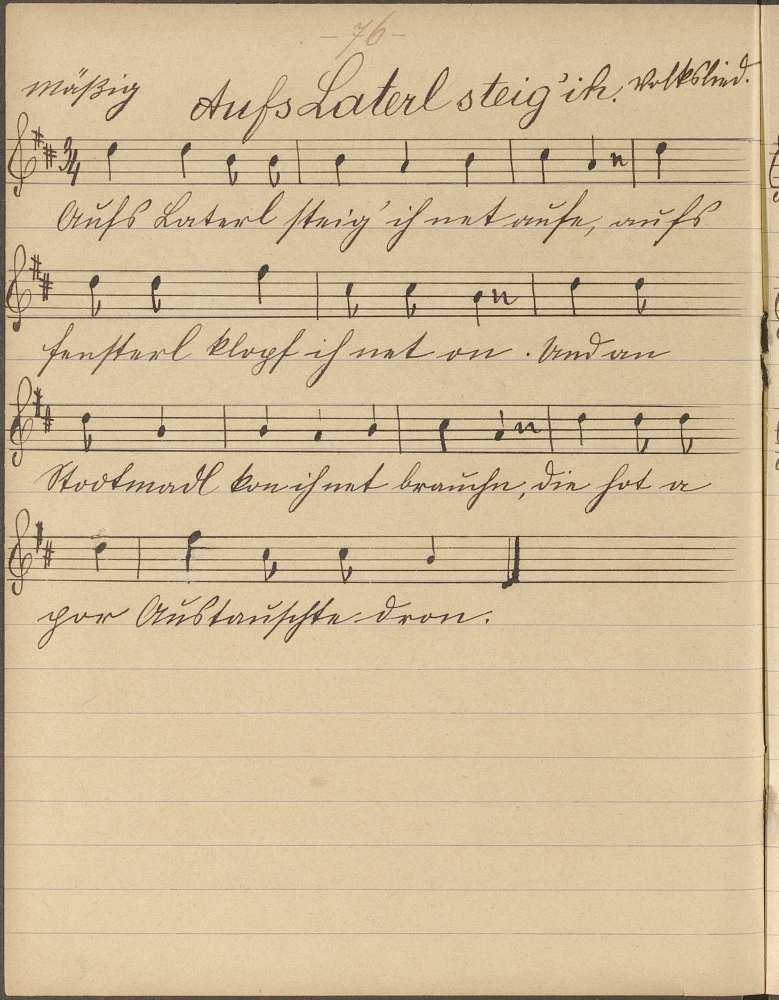 - 76 -
mäßig Aufs Laterl steig' ih. Volkslied.
3/4
Aufs Laterl steig' ih net aufe, aufs
fensterl klopf ih net on. Und an
Stootmadl kon ih net brauchn, die hot a
por Austauschte dron.